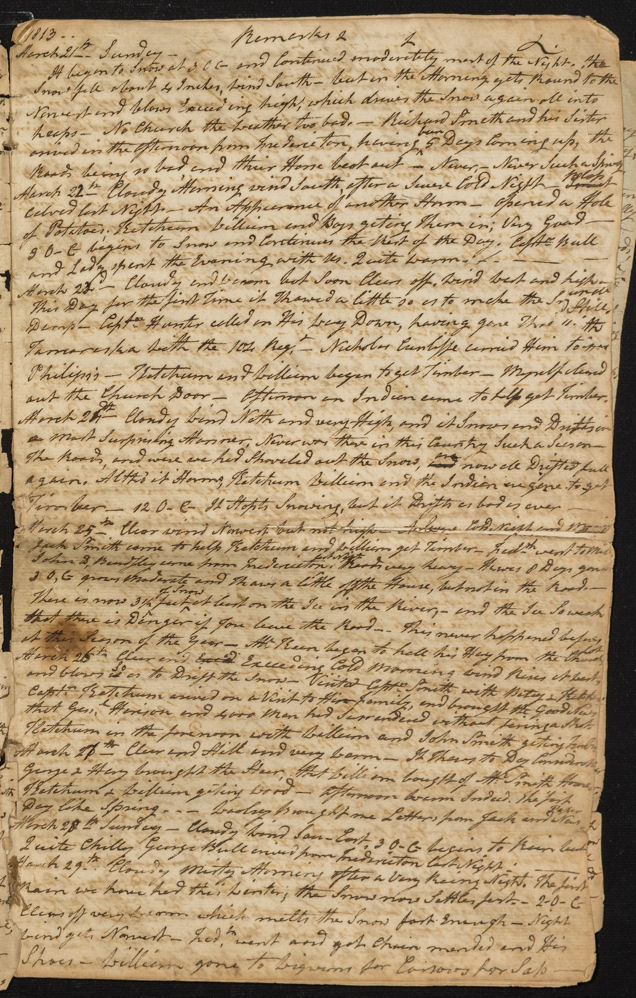 1813 . . Remarks &
March 21st Sunday —
It began to Snow at 3 O C and Continued moderately most of the Night. The
Snow fell about 4 Inches, wind South — but in the Morning gets Round to the
Norwest and blows Exceeding high, which drives the Snow again all into
heaps — No Church the weather too bad — Richard Smith and his Sister
arived in the afternoon from Fredericton, having been 5 Days Coming up, the
Roads being so bad and their Horse beat out — Never — Never Such a Spring
March 22th Cloudy Morning wind South, after a Severe Cold Night —
calved last Night — An Appearance of another Storm — opened a Hole
of Potatoes. Ketchum William and Boys geting them in, Very Good —
3 O - C begins to Snow and Continues the Rest of the Day. Captn Bull
and Lady spent the Evening with us. Quite warm
March 23d — Cloudy and warm but Soon Clears off, wind west and high
This Day for the first Time it Thawed a little so as to make the
Damp — Captn Hunter called on His way Down, having gone Thro the
Tamaraska with the 104 Regt — Nicholas Cunliffe carried Him to
Philips's — Ketchum and William began to get Timber — Myself cleared
out the Church Door — Afternoon an Indian came to help get Timber.
March 24th Cloudy wind Noth and very High, and it Snows and Drifts in
a most Surprising Manner, Never was there in this Country Such a Season —
The Roads, and were we had Shoveled out the Snow, are now all Drifted full
again. Altho it Storms, Ketchum William and the Indian are gone to get
Timber — 12 O-C It Stopts Snowing, but it Drifts as bad as ever —
March 25th Clear wind Norwest but not high — A Severe Cold Night and
Jack Smith came to help Ketchum and William get Timber — Fredk went to Mill
John D Beardsley came from Fredericton, Roads very heavy — He was 8 Days gone
3 O,C grows moderate and Thaws a little off the House, but not in the Road —
There is now 3½ feet of Snow at least on the Ice in the River, — and the Ice So weak
that there is Danger if you leave the Road — This never happened before,
at this Season of the Year — Mr Keen began to hall his Hay from the
March 26th Clear and Exceeding Cold Morning wind Rises at
and blows so as to Drift the Snow — Visited Captn Smith with Betsy &
Captn Ketchum arived on a Visit to Hove family, and brought the Good
that Genl Harison and 4000 men had Surrendered without firing a Shot
Ketchum in the forenoon with William and John Smith geting
March 27th — Clear and Still and very warm — It Thaws to Day
George & Harry brought the Steer, that William bought of Mr Smith Home,
Ketchum & William geting wood — Afternoon warm Indeed. The first
Day like Spring. — — Wolsey brought me Letters from Jack and
March 28th Sunday — Cloudy wind Sou-East. 3 O-C begins to Rain but
Quite Chilley George Bull arived from Fredericton last Night.
March 29th Cloudy Misty Morning after a Very Rainy Night. The first
Rain we have had this Winter, the Snow now Settles fast — 2 O-C
Clears off very warm which melts the Snow fast Enough — Night
wind gets Norwest — Fredk went and got Chain mended and His
Shoes — William gone to bigerms for for Sap —